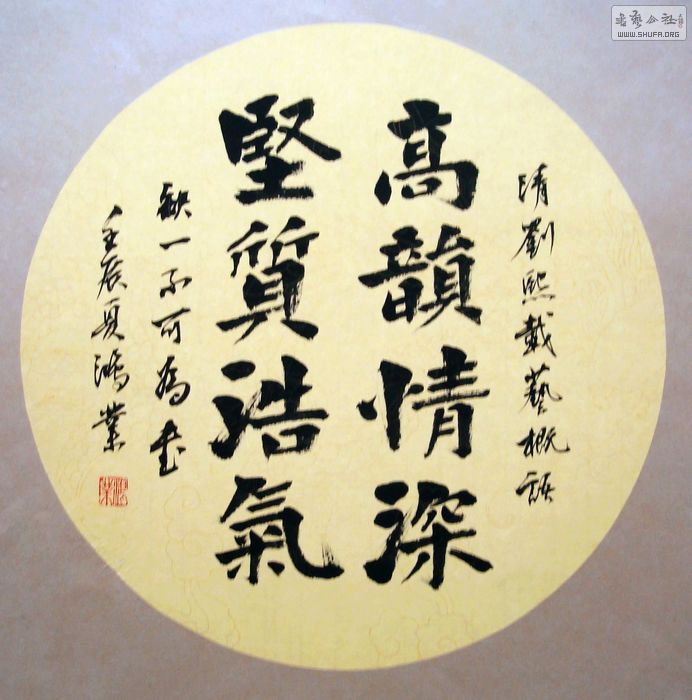 清劉熙載藝概語
髙韻情深
堅質浩氣
缺一不可為書
壬辰夏鴻業
书艺公社
WWW.SHUFA.ORG